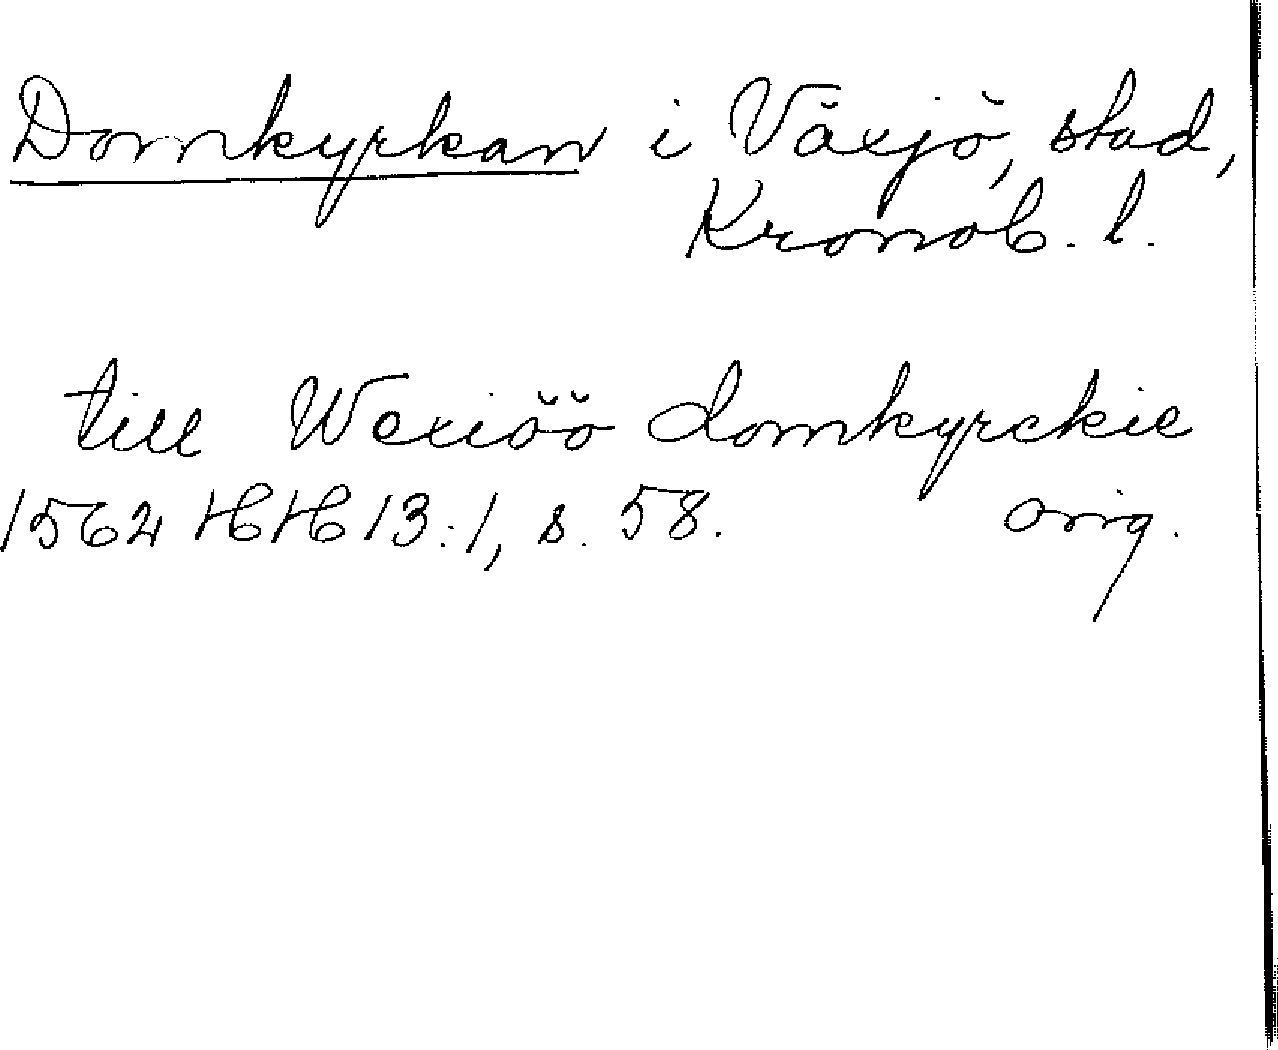 Domkyrkan i Växjö, stad,
Kronob. l.
till Wexiöö domkyrckie
1562 HH 13:1, s. 58. orig.